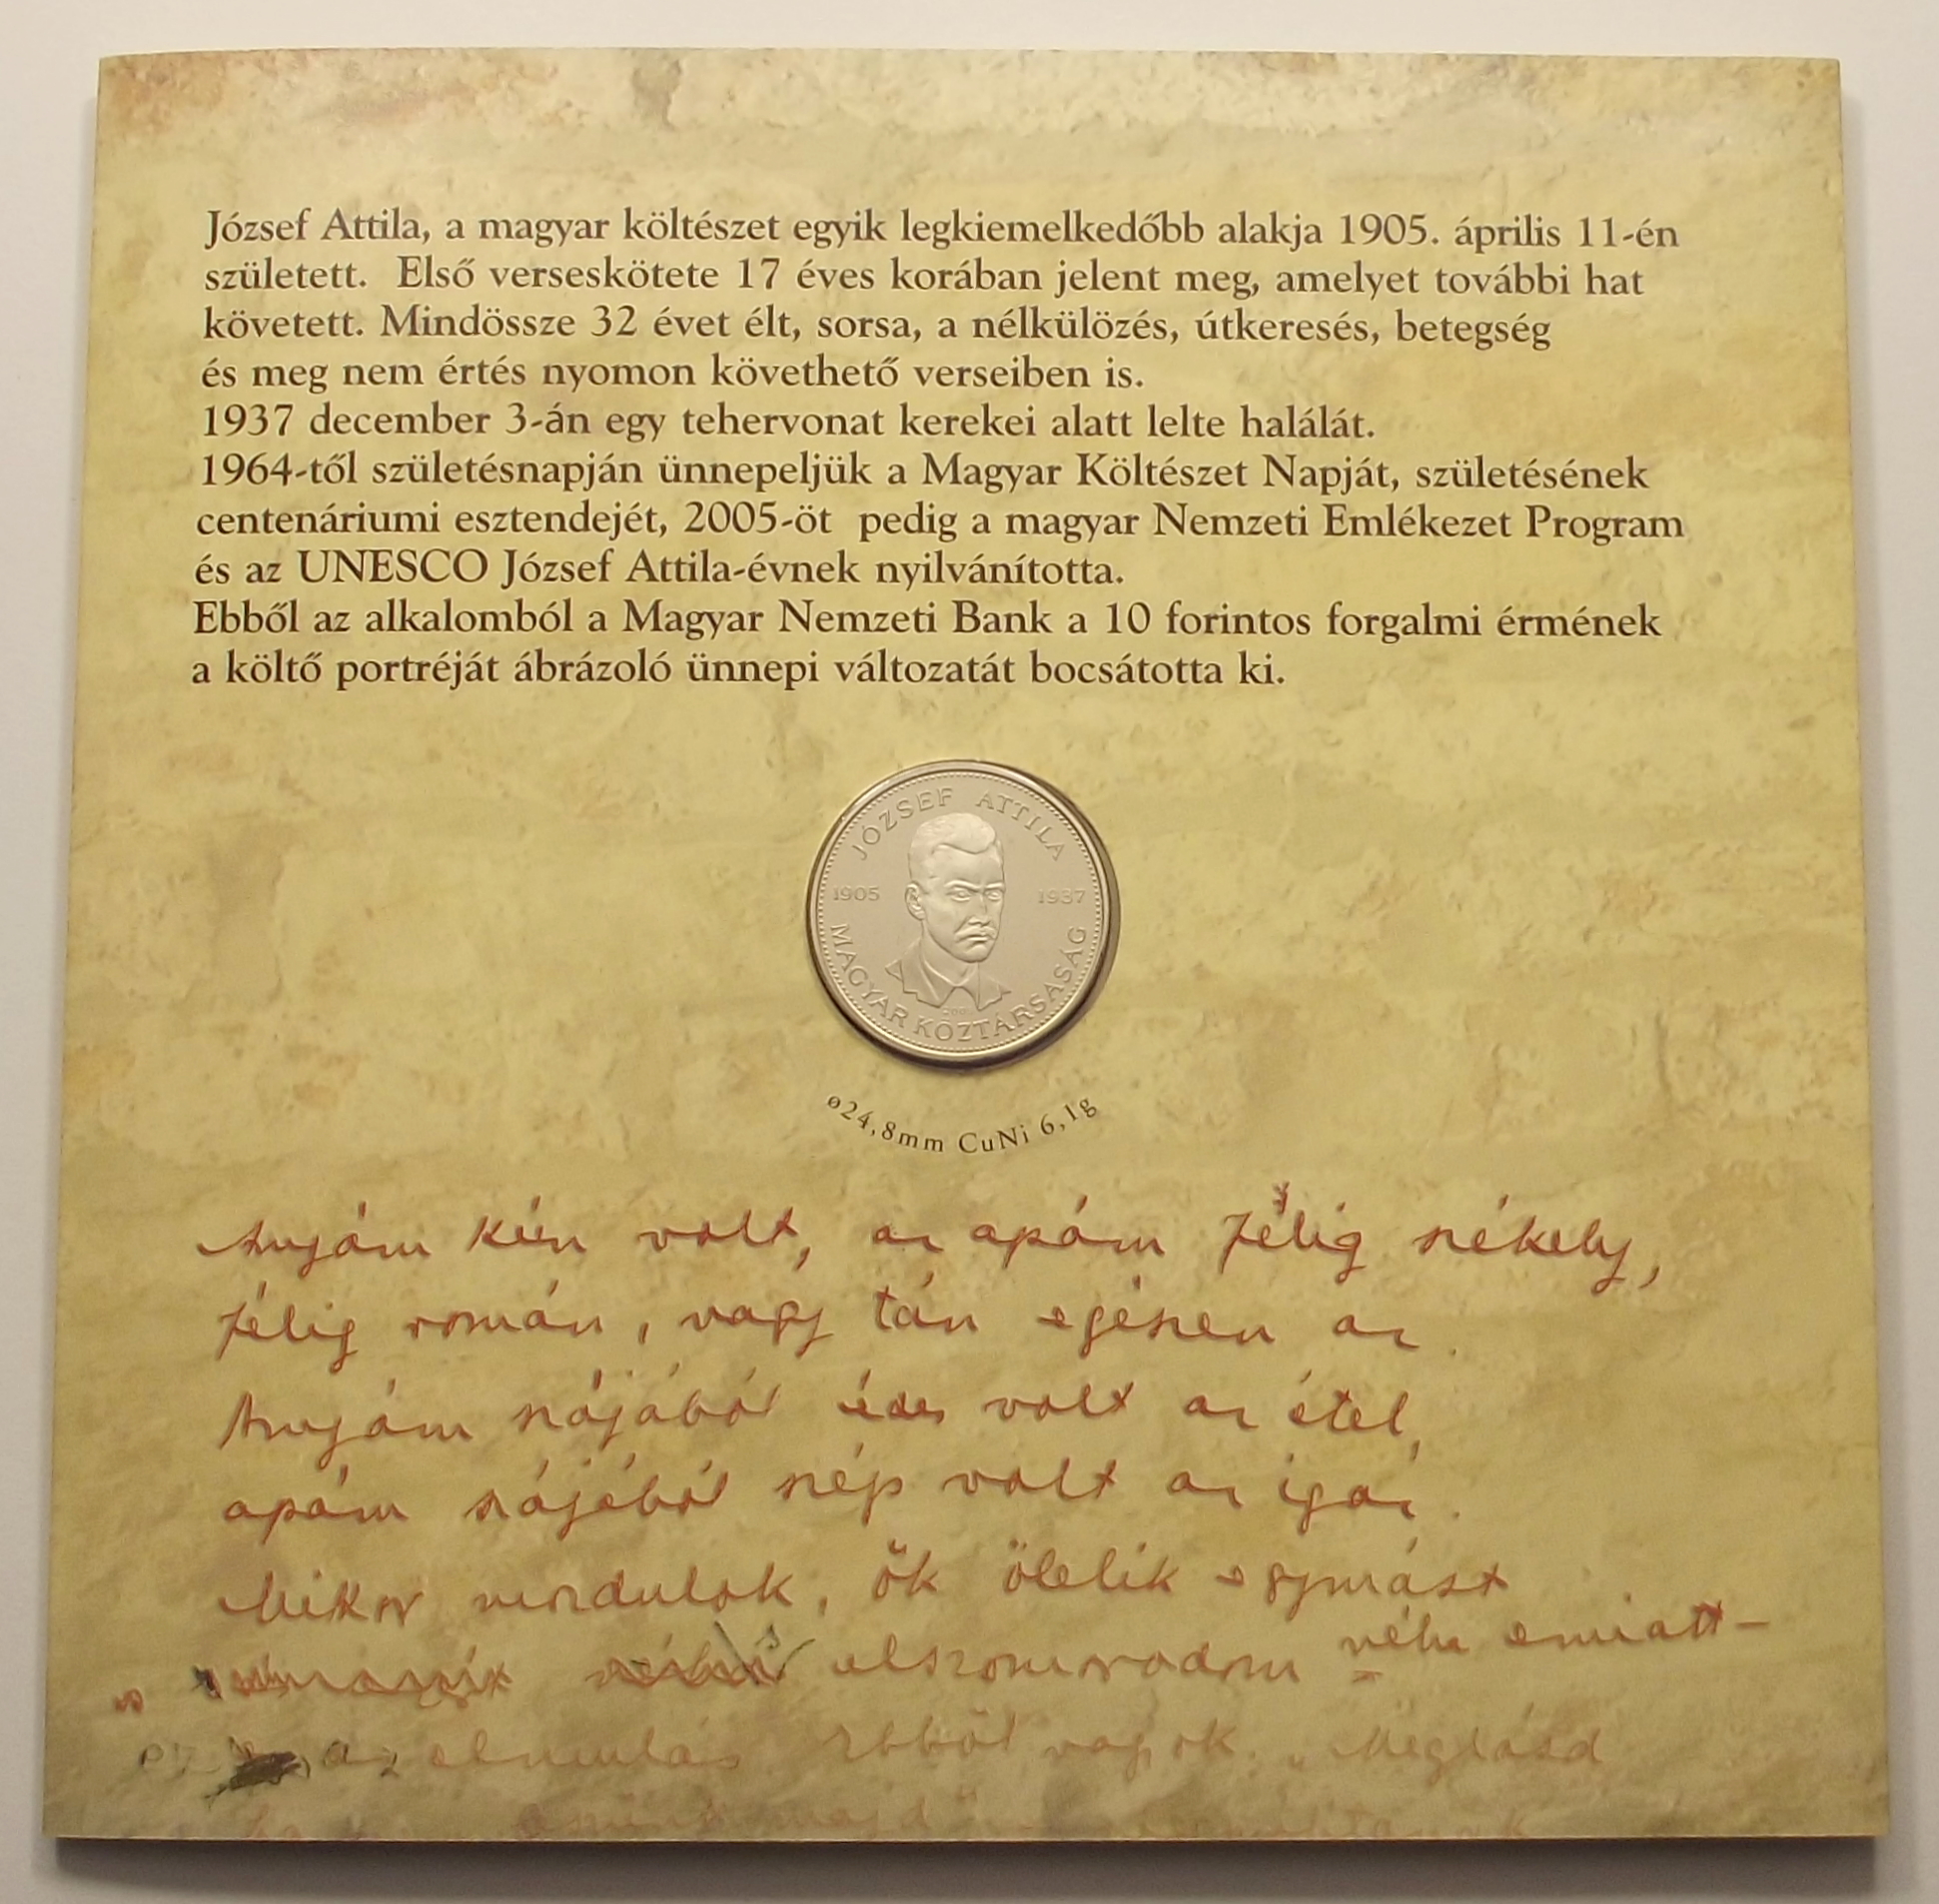 József Attila, a magyar költészet egyik legkiemelkedőbb alakja 1905. április 11-én
született. Első verseskötete 17 éves korában jelent meg, amelyet további hat
követett. Mindössze 32 évet élt, sorsa, a nélkülözés, útkeresés, betegség
és meg nem értés nyomon követhető verseiben is.
1937 december 3-án egy tehervonat kerekei alatt lelte halálát.
1964-től születésnapján ünnepeljük a Magyar Költészet Napját, születésének
centenáriumi esztendejét, 2005-öt pedig a magyar Nemzeti Emlékezet Program
és az UNESCO József Attila-évnek nyilvánította.
Ebből az alkalomból a Magyar Nemzeti Bank a 10 forintos forgalmi érmének
a költő portréját ábrázoló ünnepi változatát bocsátotta ki.
JÓZSEF ATTILA
1905 1937
MAGYAR KÖZTÁRSASÁG
ø24,8mm CuNi 6,1g
Anyám kún volt, az apám félig székely,
félig román, vagy tán egészen az.
Anyám szájából édes volt az étel,
apám szájából szép volt az igaz.
Mikor mozdulok, ők ölelik egymást
elszomorodom néha emiatt –
ez az elmulás. Ebből vagyok. „Meglásd